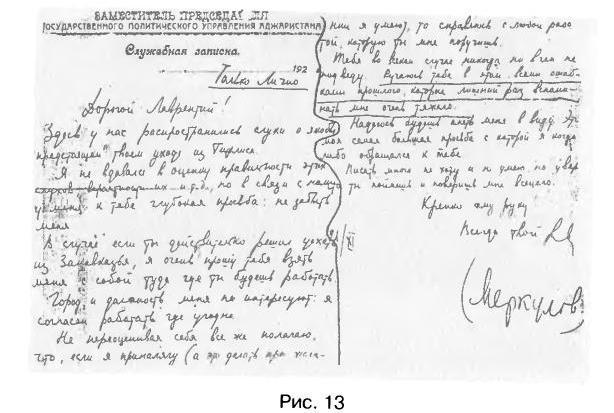 ЗАМЕСТИТЕЛЬ ПРЕДСЕДАТЕЛЯ
ГОСУДАРСТВЕННОГО ПОЛИТИЧЕСКОГО УПРАВЛЕНИЯ АДЖАРИСТАНА
Служебная записка.
192
Только Лично
Дорогой Лаврентий!
Здесь у нас распространились слухи о якобы
предстоящем твоем уходе из Тифлиса.
Я не вдаюсь в оценку правильности этих
слухов вероятности их и т.д., но в связи с ними
у меня к тебе глубокая просьба: не забыть
меня
В случае если ты действительно решил уехать
из Закавказья, я очень прошу тебя взять
меня с собой туда где ты будешь работать.
Город и должность меня не интересуют: я
согласен работать где угодно.
Не переоценивая себя все же полагаю,
что, если я приналягу (а это делать при жела-
нии я умею), то справлюсь с любой рабо
той, которую ты мне поручишь.
Тебя во всяком случае никогда ни в чем не
подведу. Ручаюсь тебе в этом всеми ошиб-
ками прошлого, которые лишний раз вспоми-
нать мне очень тяжело.
Надеюсь будешь иметь меня в виду. Это
моя самая большая просьба с которой я когда
либо обращался к тебе.
Писать много не хочу и не умею, но уверен
ты поймешь и поверишь мне всецело.
Крепко жму руку
Всегда твой
(Меркулов)
Рис. 13